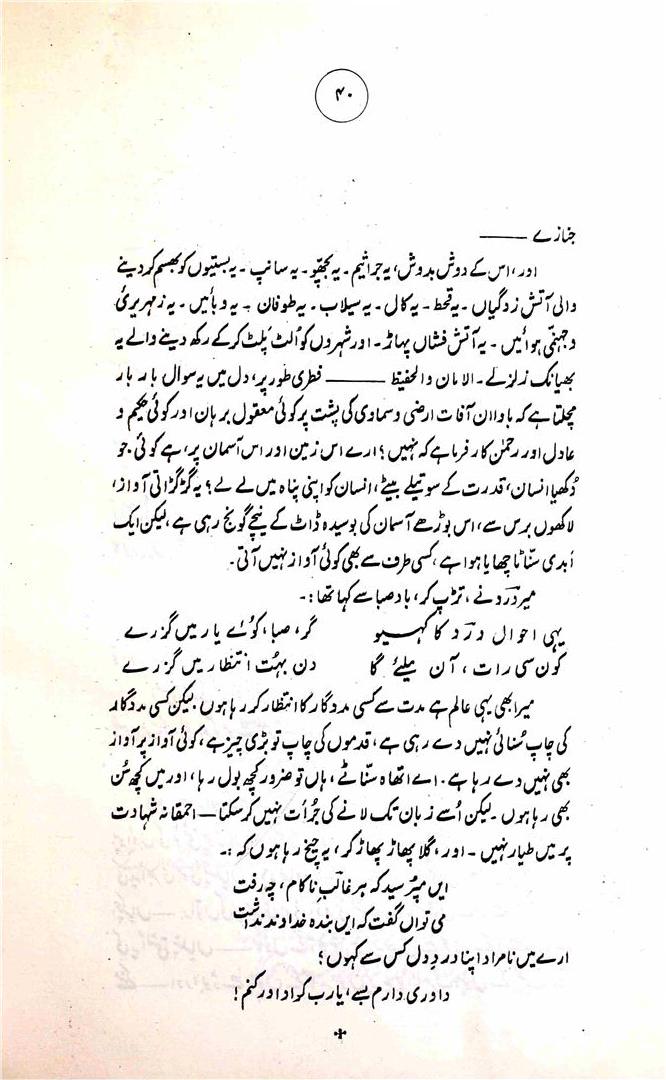 ۴۰
جنازے ———
اور، اس کے دوش بدوش، یہ جراثیم۔ یہ بچھّو۔ یہ سانپ۔ یہ بستیوں کو بھسم کر دینے
والی آتش زدگیاں۔ یہ قحط۔ یہ کال۔ یہ سیلاب۔ یہ طوفان۔ یہ وبائیں۔ یہ زمہریری
و جہنّمی ہوائیں۔ یہ آتش فشاں پہاڑ۔ اور شہروں کو اُلٹ پلٹ کر کے رکھ دینے والے یہ
بھیانک زلزلے۔ الامان والحفیظ ——— فطری طور پر، دل میں یہ سوال بار بار
مچلتا ہے کہ باوا ان آفات ارضی و سماوی کی پشت پر کوئی معقول برہان اور کوئی حکیم و
عادل اور رحمٰن کار فرما ہے کہ نہیں؟ ارے اس زمین اور اس آسمان پر، ہے کوئی جو
دُکھیا انسان، قدرت کے سوتیلے بیٹے، انسان کو اپنی پناہ میں لے لے؟ یہ گڑگڑاتی آواز،
لاکھوں برس سے، اس بوڑھے آسمان کی بوسیدہ ڈاٹ کے نیچے گونج رہی ہے، لیکن ایک
اَبدی سنّاٹا چھایا ہوا ہے، کسی طرف سے بھی کوئی آواز نہیں آتی۔
میر درد نے، تڑپ کر، باد صبا سے کہا تھا:۔
یہی احوال درد کا کہیو گر، صبا، کوئے یار میں گزرے
کون سی رات، آن ملیئے گا دن بہُت انتظار میں گزرے
میرا بھی یہی عالم ہے مدت سے کسی مددگار کا انتظار کر رہا ہوں لیکن کسی مددگار
کی چاپ سُنائی نہیں دے رہی ہے، قدموں کی چاپ تو بڑی چیز ہے، کوئی آواز پر آواز
بھی نہیں دے رہا ہے۔ اے اتھاہ سنّاٹے، ہاں تو ضرور کچھ بول رہا، اور میں کچھ سُن
بھی رہا ہوں۔ لیکن اُسے زبان تک لانے کی جُرأت نہیں کر سکتا — احمقانہ شہادت
پر میں طیار نہیں۔ اور، گلا پھاڑ پھاڑ کر، یہ چیخ رہا ہوں کہ:۔
ایں مپُرسید کہ بر غالبِ ناکام، چہ رفت
می تواں گفت کہ ایں بندہ خداوند نداشت
ارے میں نامراد اپنا دردِ دل کس سے کہوں؟
داوری دارم بسے، یا رب کرا داور کنم!